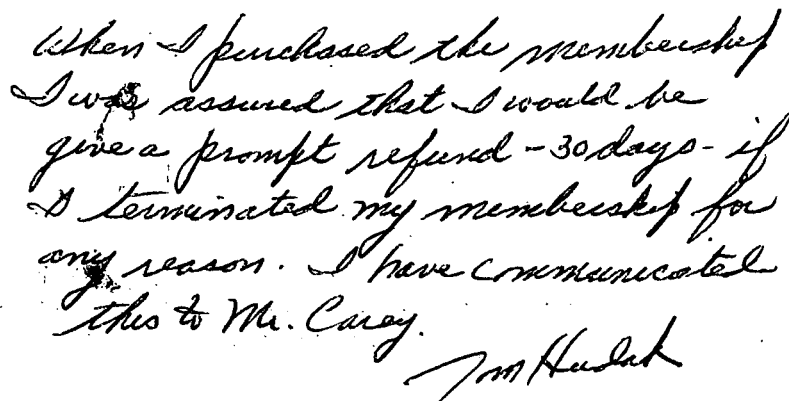 When I purchased the membership
I was assured that I would be
give a prompt refund - 30 days - if
I terminated my membership for
any reason. I have communicated
this to Mr. Carey.
Tom Hudak